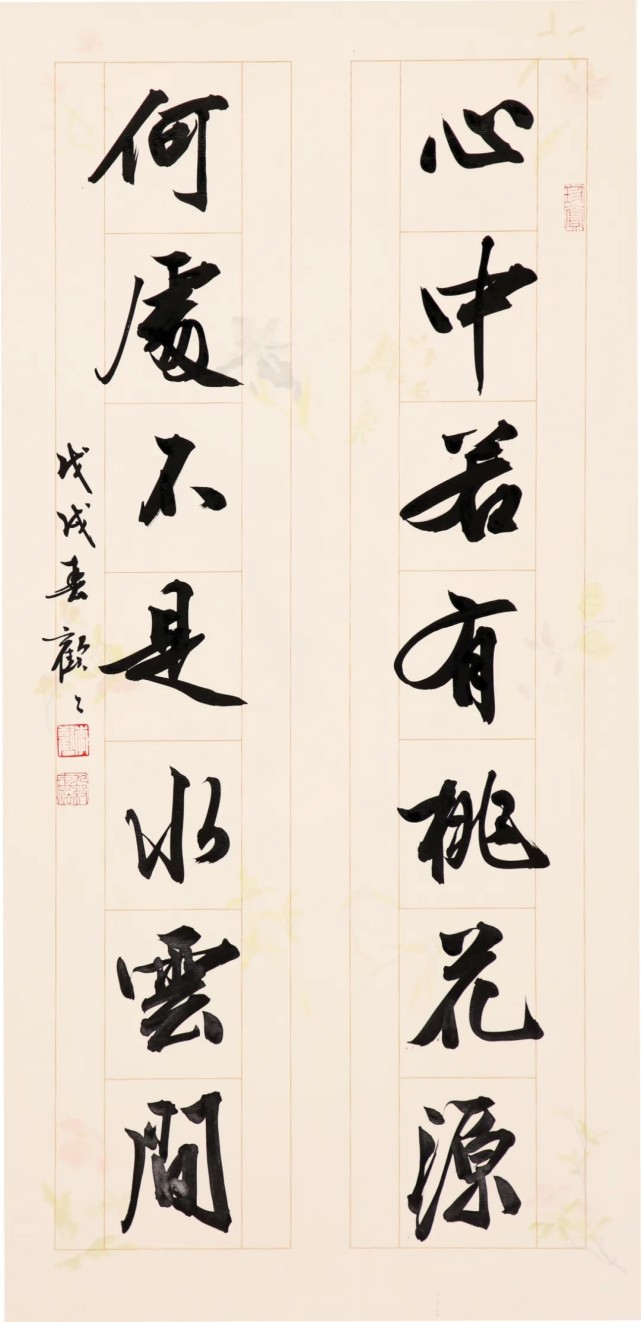 心中若有桃花源
何處不是水雲間
戊戌春歡〻